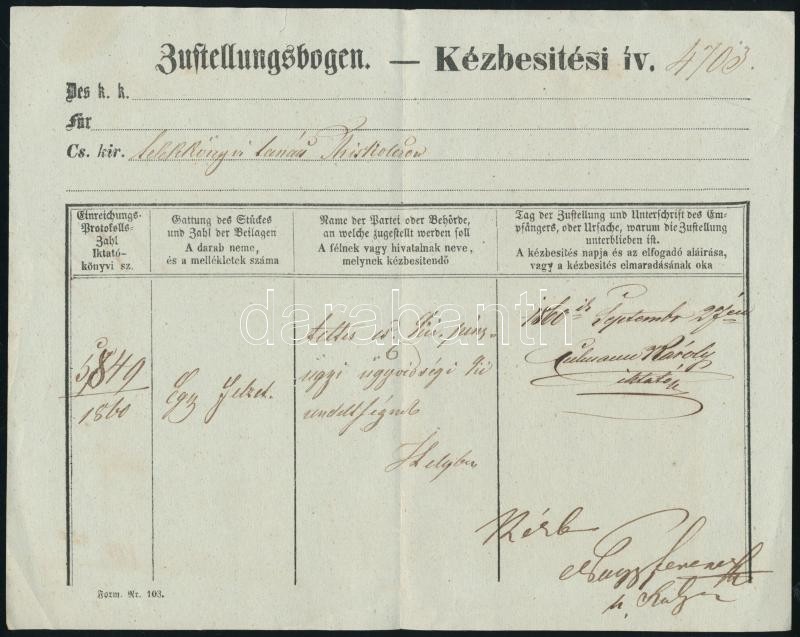 Zustellungsbogen. — Kézbesitési ív. 4703.
Des k. k.
Für
Cs. kir. telekkönyvi tanács Miskolczon
Einreichungs-
Protokolls-
Zahl
Iktató-
könyvi sz.
Gattung des Stückes
und Zahl der Beilagen
A darab neme,
és a mellékletek száma
Name der Partei oder Behörde,
an welche zugestellt werden soll
A félnek vagy hivatalnak neve,
melynek kézbesitendő
Tag der Zustellung und Unterschrift des Em-
pfängers, oder Ursache, warum die Zustellung
unterblieben ist.
A kézbesités napja és az elfogadó aláirása,
vagy a kézbesités elmaradásának oka
5849
1860
Egy
tettes cs. kir. pénz-
ügyi ügyvédségi ki
rendeltségnek
Helyben
1860ik Septembr 27én
Károly
iktató
Kézb
Nagy Ferencz
darabanth
Form. Nr. 103.